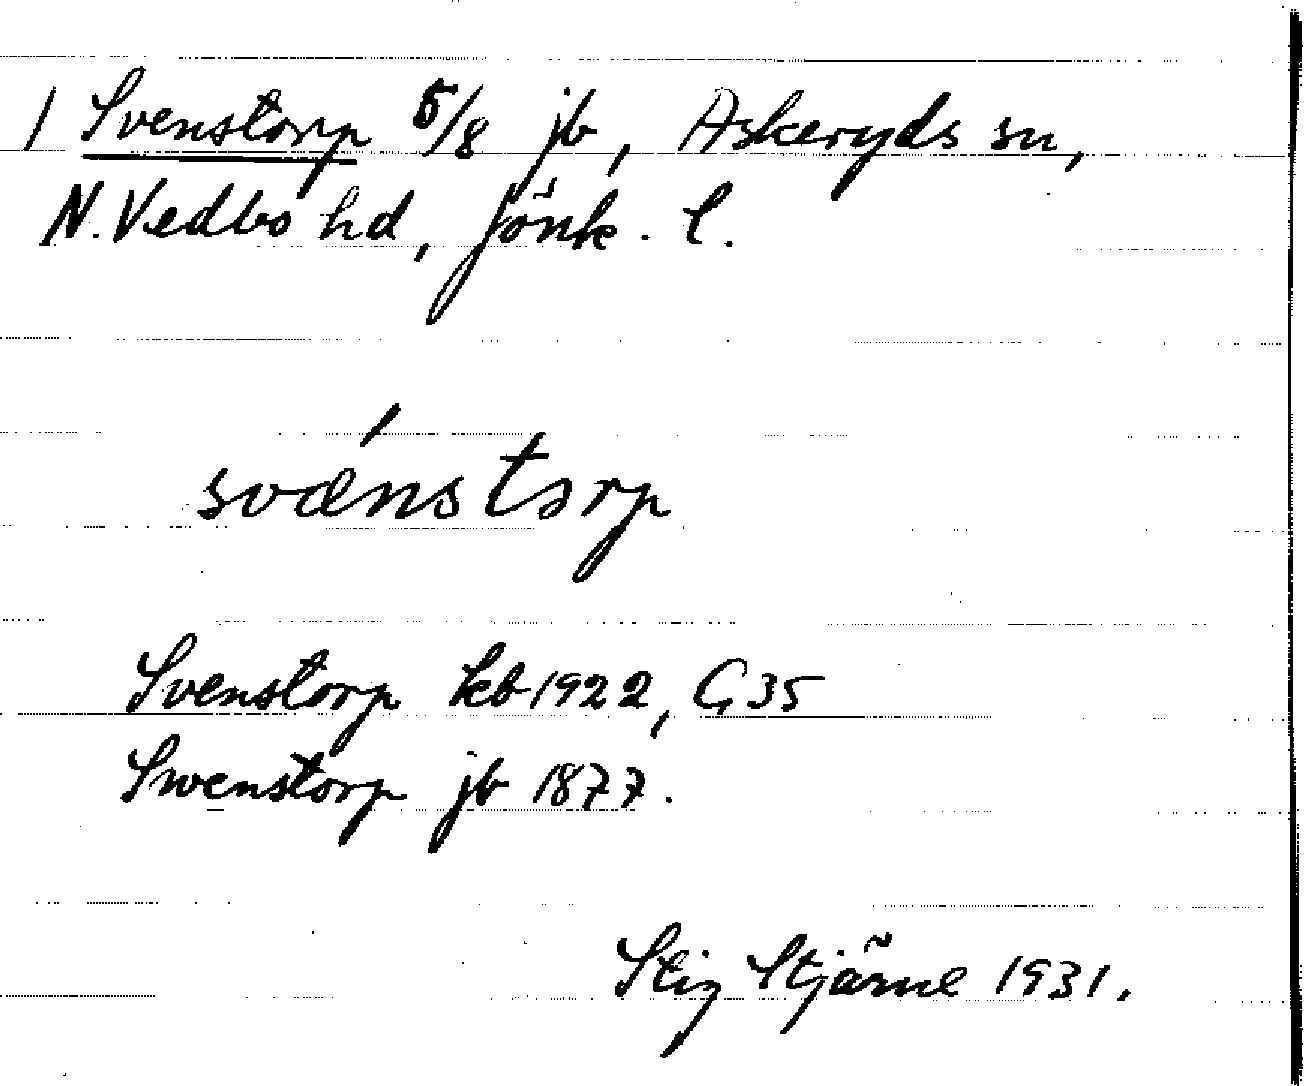 1 Svenstorp 5/8 jb, Askeryds sn,
N. Vedbo hd, Jönk. l.
svǽnstorp
Svenstorp kb 1922, G 35
Swenstorp jb 1877.
Stig Stjärne 1931.